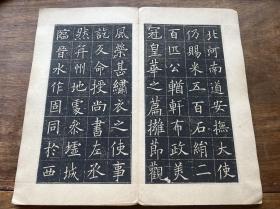 北河南道安撫大使
仍賜米五百石絹二
百匹公輶軒布政美
冠皇華之篇擁節觀
風榮甚繡衣之使事
訖反命授尚書左丞
然并州地處參墟城
臨晉水作固同於西